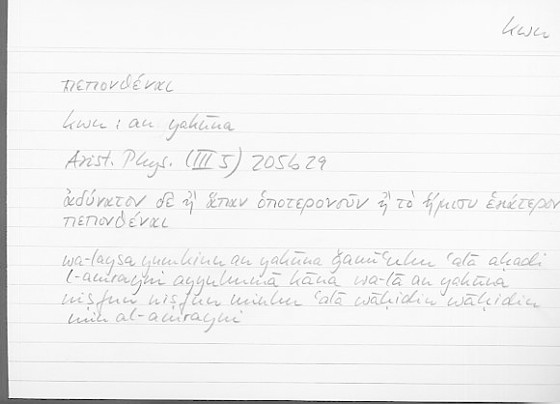 kwn
πεπονθέναι
kwn : an yakūna
Arist. Phys. (III 5) 205b29
ἀδύνατον δὲ ἢ ἅπαν ὁποτερονοῦν ἢ τὸ ἥμισυ ἑκάτερον
πεπονθέναι
wa-laysa yumkinu an yakūna ǧamīʿuhu ʿalā aḥadi
l-amrayni ayyuhumā kāna wa-lā an yakūna
niṣfun niṣfun minhu ʿalā wāḥidin wāḥidin
min al-amrayni